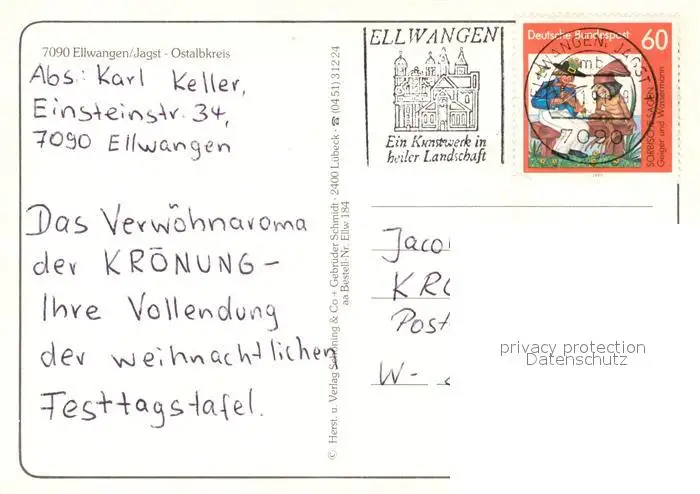 7090 Ellwangen/Jagst - Ostalbkreis
Abs: Karl Keller,
Einsteinstr. 34,
7090 Ellwangen
Das Verwöhnaroma
der KRÖNUNG –
Ihre Vollendung
der weihnachtlichen
Festtagstafel.
© Herst. u. Verlag Schöning & Co + Gebrüder Schmidt · 2400 Lübeck · ☎ (04 51) 3 12 24
aa Bestell-Nr. Ellw 184
ELLWANGEN
Ein Kunstwerk in
heiler Landschaft
Deutsche Bundespost 60
SORBISCHE SAGEN
Geiger und Wassermann
ELLWANGEN, JAGST
mb
7090
Jaco
KR
Post
W-
privacy protection
Datenschutz